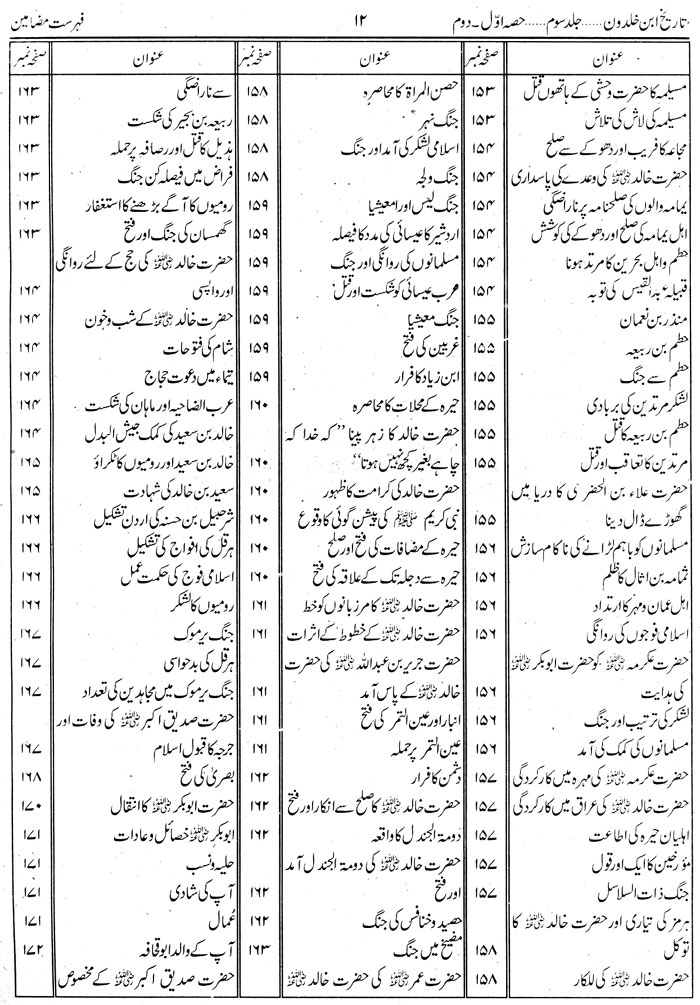 تاریخ ابن خلدون ...... جلد سوم ...... حصہ اوّل - دوم
۱۲
فہرست مضامین
عنوان
صفحہ نمبر
مسیلمہ کا حضرت وحشی کے ہاتھوں قتل ۱۵۳
مسیلمہ کی لاش کی تلاش ۱۵۳
مجاعہ کا فریب اور دھوکے سے صلح ۱۵۴
حضرت خالد رضی اللہ عنہ کی وعدے کی پاسداری ۱۵۴
یمامہ والوں کی صلحنامہ پر ناراضگی ۱۵۴
اہل یمامہ کی صلح اور دھوکے کی کوشش ۱۵۴
حطم و اہل بحرین کا مرتد ہونا ۱۵۴
قبیلہ عبد القیس کی توبہ ۱۵۴
منذر بن نعمان ۱۵۵
حطم بن ربیعہ ۱۵۵
حطم سے جنگ ۱۵۵
لشکر مرتدین کی بربادی ۱۵۵
حطم بن ربیعہ کا قتل ۱۵۵
مرتدین کا تعاقب اور قتل ۱۵۵
حضرت علاء بن الحضرمی کا دریا میں
گھوڑے ڈال دینا ۱۵۵
مسلمانوں کو باہم لڑانے کی ناکام سازش ۱۵۶
ثمامہ بن اثال کا ظلم ۱۵۶
اہل عمان و مہرہ کا ارتداد ۱۵۶
اسلامی فوجوں کی روانگی ۱۵۶
حضرت عکرمہ رضی اللہ عنہ کو حضرت ابوبکر رضی اللہ عنہ
کی ہدایت ۱۵۶
لشکر کی ترتیب اور جنگ ۱۵۶
مسلمانوں کی کمک کی آمد ۱۵۶
حضرت عکرمہ رضی اللہ عنہ کی مہرہ میں کارکردگی ۱۵۷
حضرت خالد رضی اللہ عنہ کی عراق میں کارکردگی ۱۵۷
اہلیان حیرہ کی اطاعت ۱۵۷
مؤرخین کا ایک اور قول ۱۵۷
جنگ ذات السلاسل ۱۵۷
ہرمز کی تیاری اور حضرت خالد رضی اللہ عنہ کا
توکل ۱۵۸
حضرت خالد رضی اللہ عنہ کی للکار ۱۵۸
عنوان
صفحہ نمبر
حصن المراۃ کا محاصرہ ۱۵۸
جنگ نہر ۱۵۸
اسلامی لشکر کی آمد اور جنگ ۱۵۸
جنگ ولجہ ۱۵۸
جنگ لیس اور امعیشیا ۱۵۹
اردشیر کا عیسائی کی مدد کا فیصلہ ۱۵۹
مسلمانوں کی روانگی اور جنگ ۱۵۹
عرب عیسائی کو شکست اور قتل ۱۵۹
جنگ معیشیا ۱۵۹
غربین کی فتح ۱۵۹
ابن زیاد کا فرار ۱۵۹
حیرہ کے محلات کا محاصرہ ۱۶۰
حضرت خالد کا زہر پینا "کہ خدا کہ
چاہے بغیر کچھ نہیں ہوتا" ۱۶۰
حضرت خالد کی کرامت کا ظہور ۱۶۰
نبی کریم ﷺ کی پیشن گوئی کا وقوع ۱۶۰
حیرہ کے مضافات کی فتح اور صلح ۱۶۰
حیرہ سے دجلہ تک کے علاقہ کی فتح ۱۶۰
حضرت خالد رضی اللہ عنہ کا مرزبانوں کو خط ۱۶۱
حضرت خالد رضی اللہ عنہ کے خطوط کے اثرات ۱۶۱
حضرت جریر بن عبداللہ رضی اللہ عنہ کی حضرت
خالد رضی اللہ عنہ کے پاس آمد ۱۶۱
انبار اور عین التمر کی فتح ۱۶۱
عین التمر پر حملہ ۱۶۱
دشمن کا فرار ۱۶۲
حضرت خالد رضی اللہ عنہ کا صلح سے انکار اور فتح ۱۶۲
دومۃ الجندل کا واقعہ ۱۶۲
حضرت خالد رضی اللہ عنہ کی دومۃ الجندل آمد
اور فتح ۱۶۲
حصید و خنافس کی جنگ ۱۶۲
مضیح میں جنگ ۱۶۳
حضرت عمر رضی اللہ عنہ کی حضرت خالد رضی اللہ عنہ
عنوان
صفحہ نمبر
سے ناراضگی ۱۶۳
ربیعہ بن بجیر کی شکست ۱۶۳
ہذیل کا قتل اور رصافہ پر حملہ ۱۶۳
فراض میں فیصلہ کن جنگ ۱۶۳
رومیوں کا آگے بڑھنے کا استغفار ۱۶۳
گھمسان کی جنگ اور فتح ۱۶۳
حضرت خالد رضی اللہ عنہ کی حج کے لئے روانگی
اور واپسی ۱۶۴
حضرت خالد رضی اللہ عنہ کے شب و خون ۱۶۴
شام کی فتوحات ۱۶۴
تیماء میں دعوت حجاج ۱۶۴
عرب الضاحیہ اور ماہان کی شکست ۱۶۴
خالد بن سعید کی کمک جیش البدل ۱۶۴
خالد بن سعید اور رومیوں کا ٹکراؤ ۱۶۵
سعید بن خالد کی شہادت ۱۶۵
شرحبیل بن حسنہ کی اردن تشکیل ۱۶۶
ہرقل کی افواج کی تشکیل ۱۶۶
اسلامی فوج کی حکمت عمل ۱۶۶
رومیوں کا لشکر ۱۶۶
جنگ یرموک ۱۶۷
ہرقل کی بدحواسی ۱۶۷
جنگ یرموک میں مجاہدین کی تعداد ۱۶۷
حضرت صدیق اکبر رضی اللہ عنہ کی وفات اور
جرجہ کا قبول اسلام ۱۶۷
بصریٰ کی فتح ۱۶۸
حضرت ابوبکر رضی اللہ عنہ کا انتقال ۱۷۰
ابوبکر رضی اللہ عنہ خصائل و عادات ۱۷۱
حلیہ و نسب ۱۷۱
آپ کی شادی ۱۷۱
عُمال ۱۷۱
آپ کے والد ابوقحافہ ۱۷۲
حضرت صدیق اکبر رضی اللہ عنہ کے مخصوص